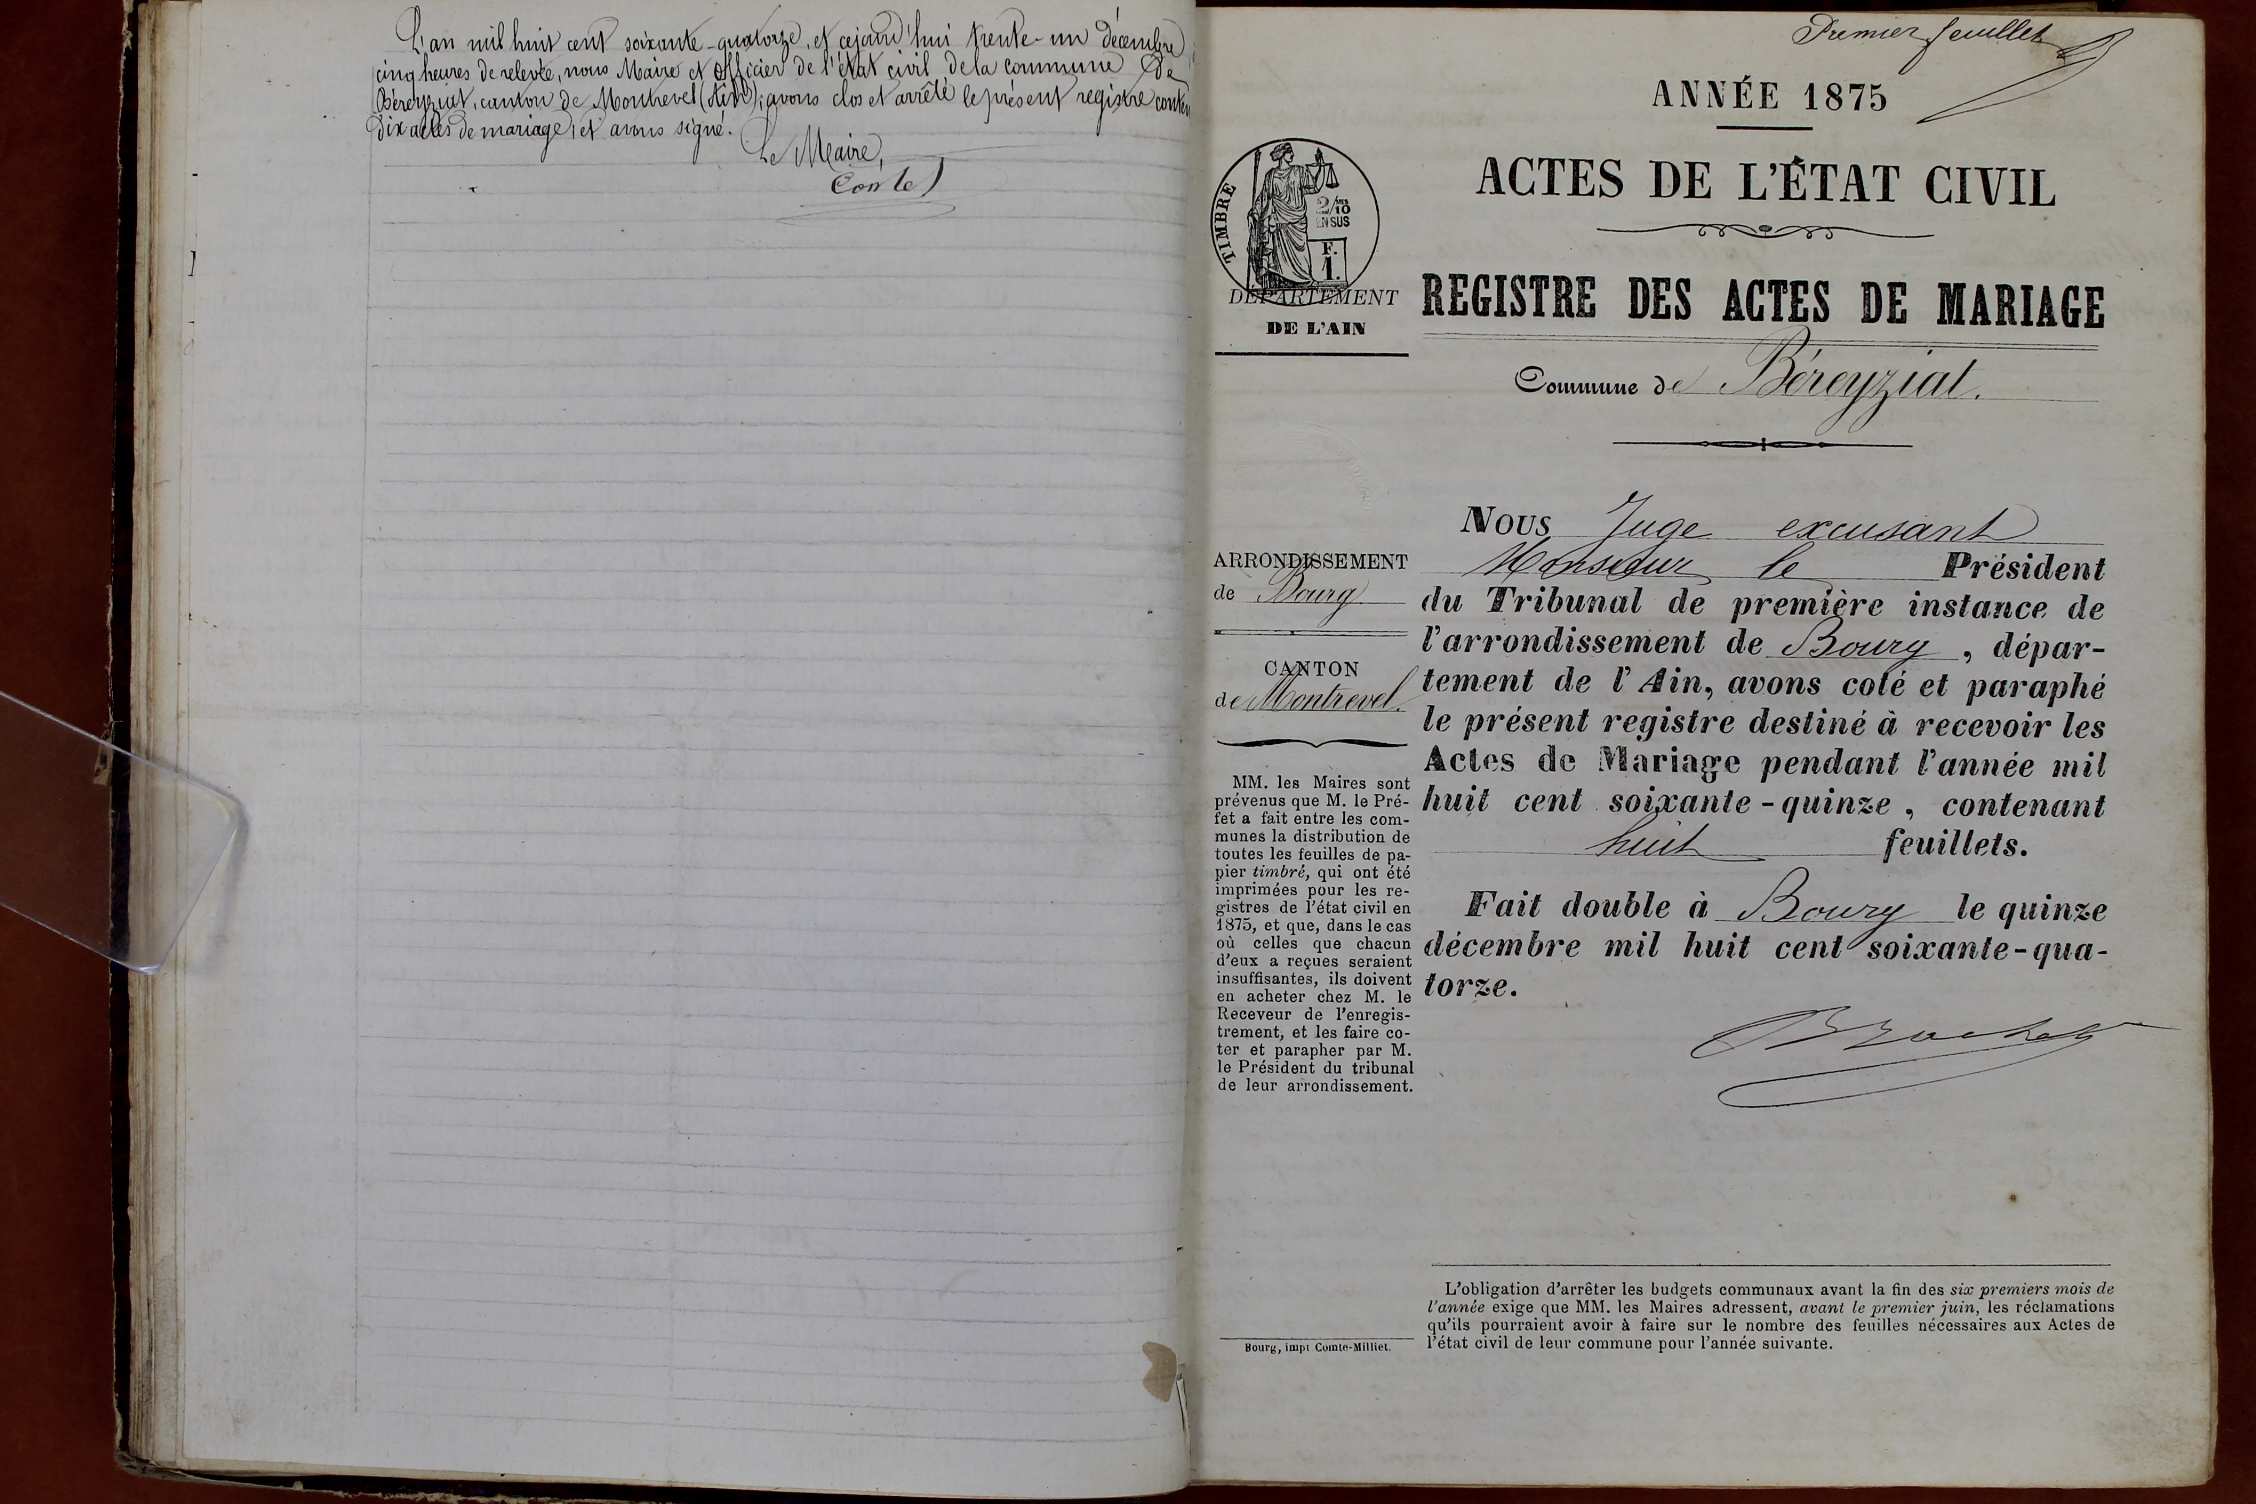 L'an mil huit cent soixante-quatorze, et cejourd'hui trente-un décembre
cinq heures de relevée, nous Maire et Officier de l'état civil de la commune de
Béreyziat, canton de Montrevel (Ain); avons clos et arrêté le présent registre conten
dix actes de mariage, et avons signé.
Le Maire,
Comte
Premier feuillet
ANNÉE 1875
ACTES DE L'ÉTAT CIVIL
TIMBRE
2/10
EN SUS
F.
1.
DÉPARTEMENT
DE L'AIN
REGISTRE DES ACTES DE MARIAGE
Commune de Béreyziat.
ARRONDISSEMENT
de Bourg
CANTON
de Montrevel.
MM. les Maires sont
prévenus que M. le Pré-
fet a fait entre les com-
munes la distribution de
toutes les feuilles de pa-
pier timbré, qui ont été
imprimées pour les re-
gistres de l'état civil en
1875, et que, dans le cas
où celles que chacun
d'eux a reçues seraient
insuffisantes, ils doivent
en acheter chez M. le
Receveur de l'enregis-
trement, et les faire co-
ter et parapher par M.
le Président du tribunal
de leur arrondissement.
Nous Juge excusant
Monsieur le Président
du Tribunal de première instance de
l'arrondissement de Bourg, dépar-
tement de l'Ain, avons coté et paraphé
le présent registre destiné à recevoir les
Actes de Mariage pendant l'année mil
huit cent soixante-quinze, contenant
huit feuillets.
Fait double à Bourg le quinze
décembre mil huit cent soixante-qua-
torze.
L'obligation d'arrêter les budgets communaux avant la fin des six premiers mois de
l'année exige que MM. les Maires adressent, avant le premier juin, les réclamations
qu'ils pourraient avoir à faire sur le nombre des feuilles nécessaires aux Actes de
l'état civil de leur commune pour l'année suivante.
Bourg, impr Comte-Milliet.